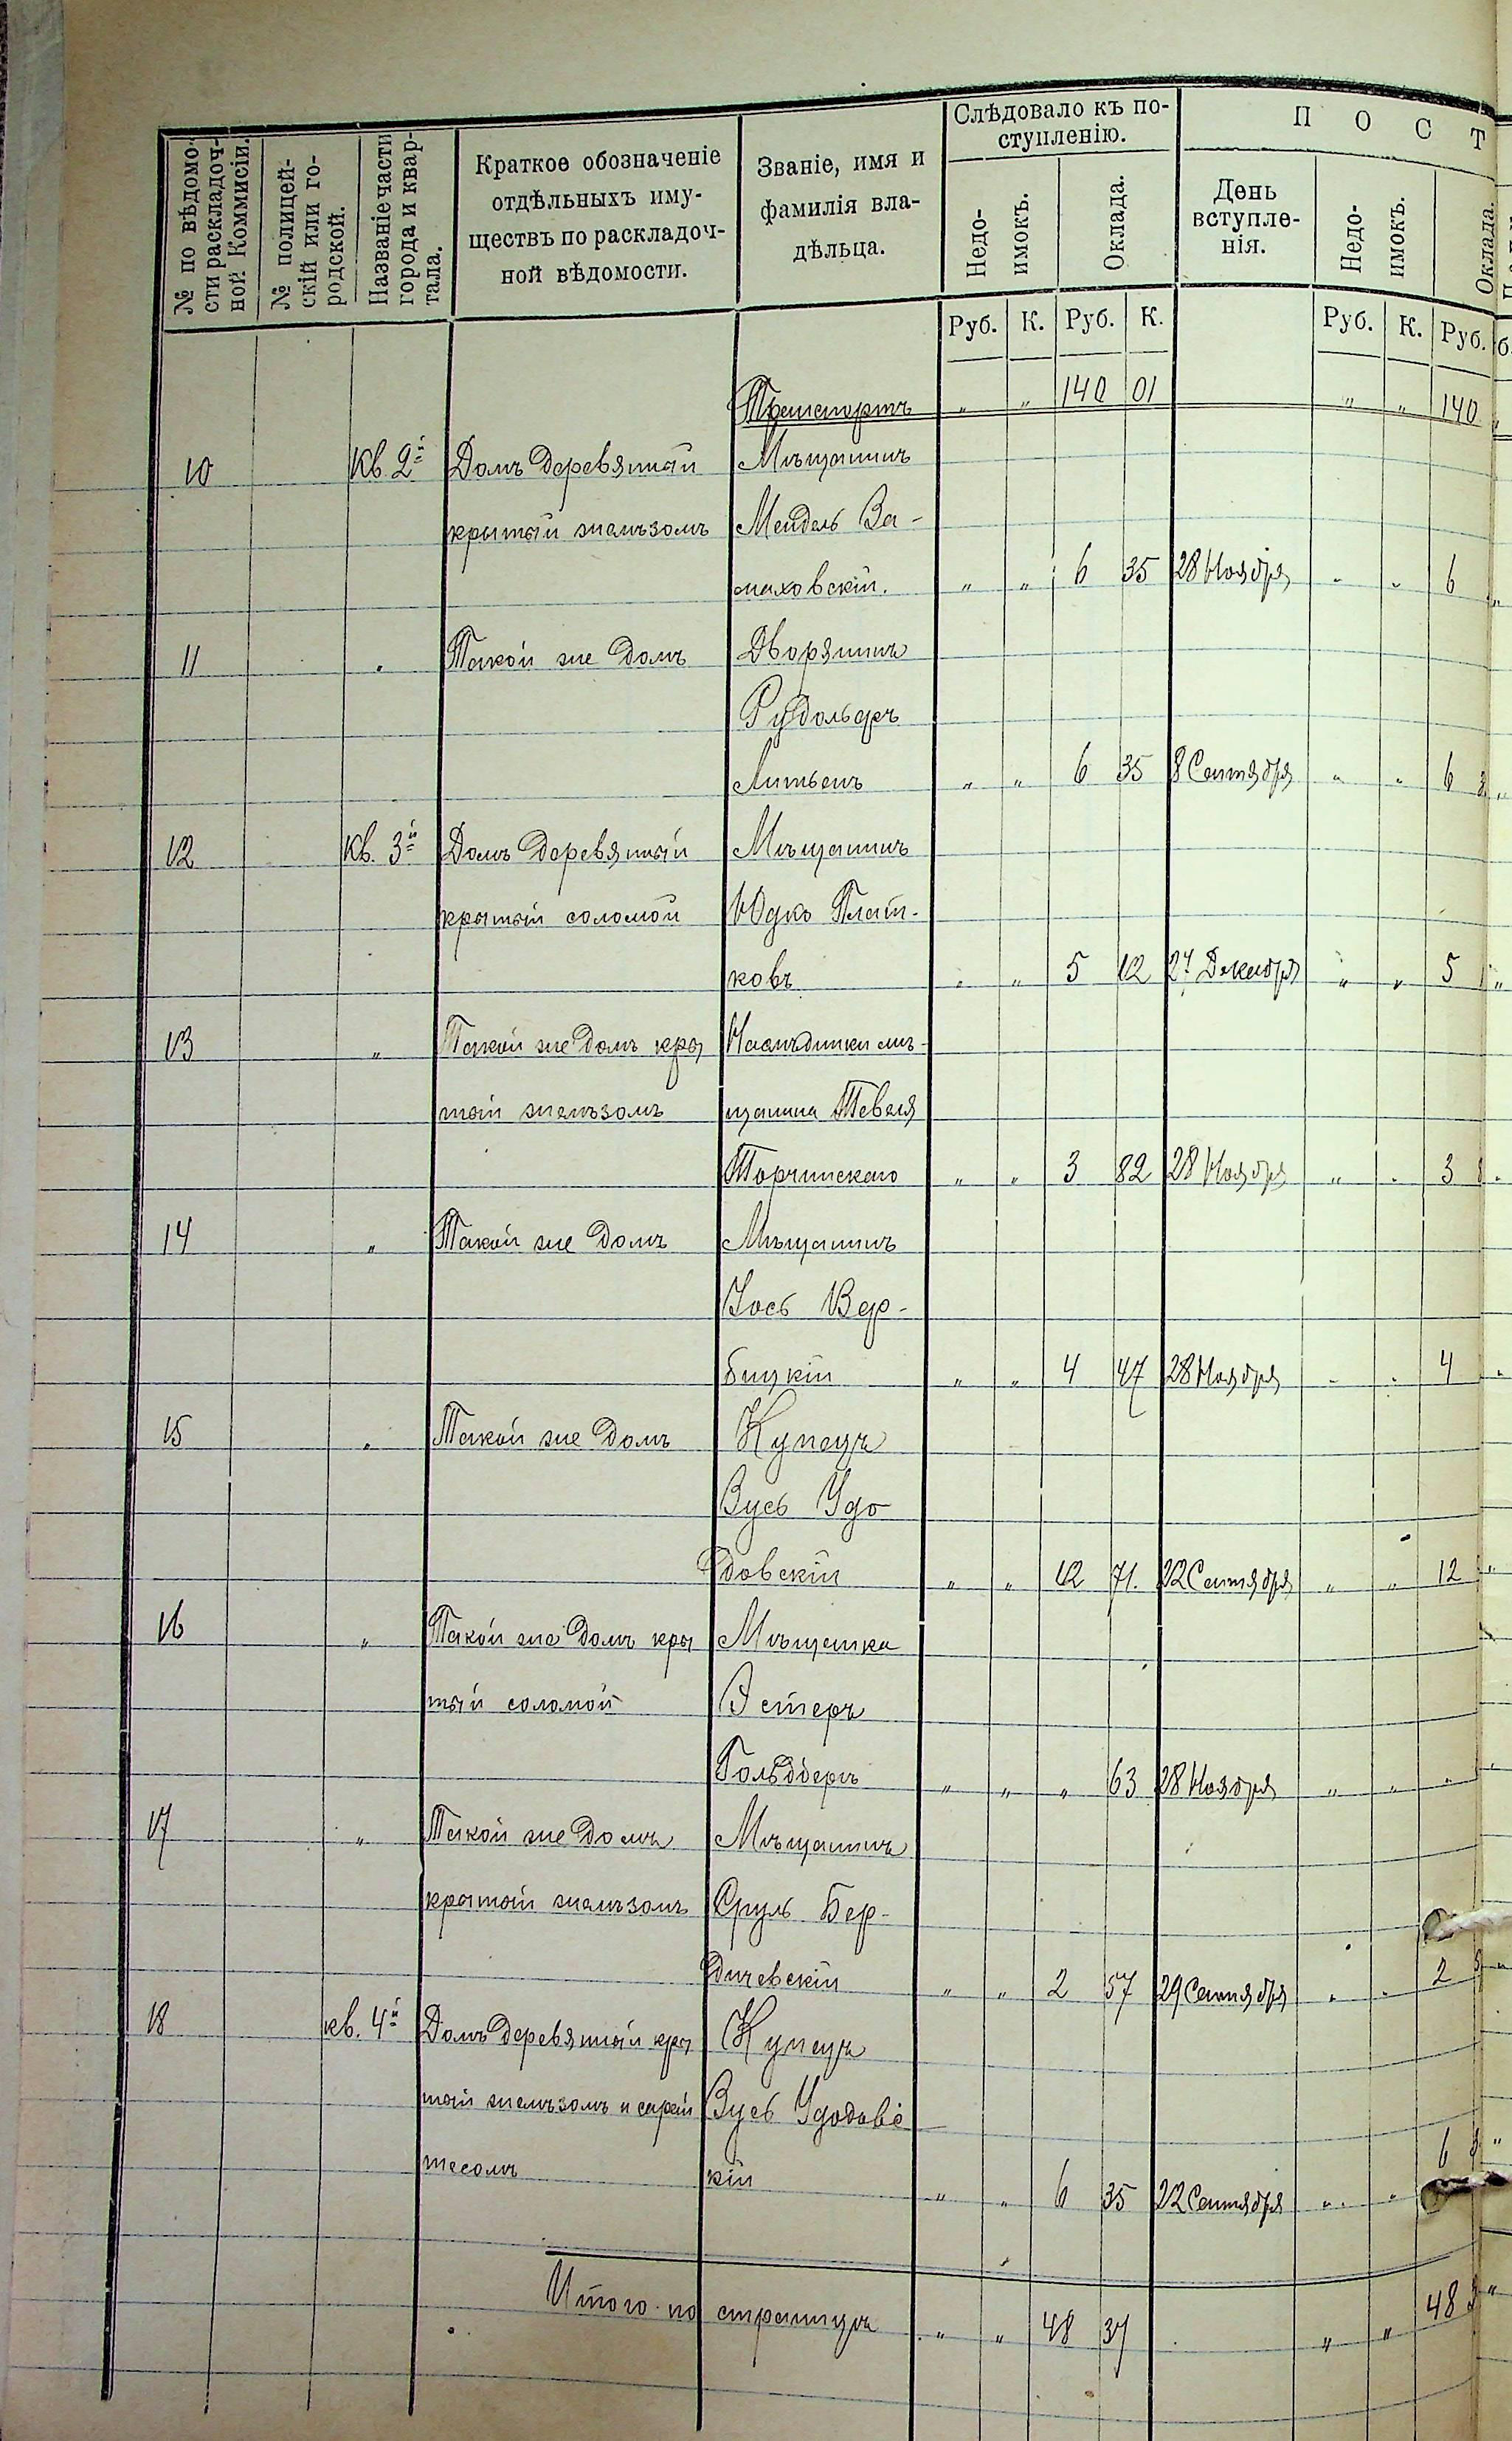 № по вѣдомо-
сти раскладоч-
ной Коммисіи.
№ полицей-
скій или го-
родской.
Названіе части
города и квар-
тала.
Краткое обозначеніе
отдѣльныхъ иму-
ществъ по раскладоч-
ной вѣдомости.
Званіе, имя и
фамилія вла-
дѣльца.
Слѣдовало къ по-
ступленію.
Недо-
имокъ.
Оклада.
П О С Т
День
вступле-
нія.
Недо-
имокъ.
Оклада.
Руб. К. Руб. К. Руб. К. Руб.
Транспортъ „ „ 140 01 „ „ 140
10 Кв. 2й Домъ деревянный Мѣщанинъ
крытый желѣзомъ Мендель Ва-
маховскій. „ „ 6 35 28 Ноября „ „ 6
11 „ Такой же домъ Дворянинъ
Рудольфъ
Литвенъ „ „ 6 35 8 Сентября „ „ 6
12 Кв. 3й Домъ деревянный Мѣщанинъ
крытый соломой Юдко Плат-
ковъ „ „ 5 12 27 Декабря „ „ 5
13 „ Такой же домъ кры Наслѣдники мѣ-
тый желѣзомъ щанина Тевеля
Торчинскаго „ „ 3 82 28 Ноября „ „ 3
14 „ Такой же домъ Мѣщанинъ
Іось Вер-
бицкій „ „ 4 47 28 Ноября „ „ 4
15 „ Такой же домъ Купецъ
Вусь Удо
довскій „ „ 12 71. 22 Сентября „ „ 12
16 „ Такой же домъ кры Мѣщанка
тый соломой Эстеръ
Гольдбергъ „ „ „ 63 28 Ноября „ „ „
17 „ Такой же домъ Мѣщанинъ
крытый желѣзомъ Сруль Бер-
дичевскій „ „ 2 57 29 Сентября „ „ 2
18 кв. 4й Домъ деревянный кры Купецъ
тый желѣзомъ и сарай Вусь Удодовс
тесомъ кій „ „ 6 35 22 Сентября „ „ 6
Итого по страницѣ „ „ 48 37 „ „ 48